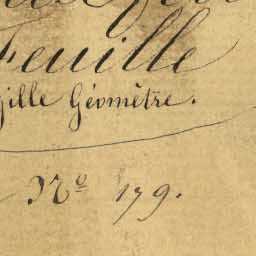 Feuille
gille Géomètre.
Nº 179.